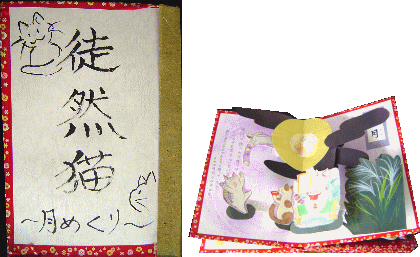 徒然猫
〜月めくり〜
月